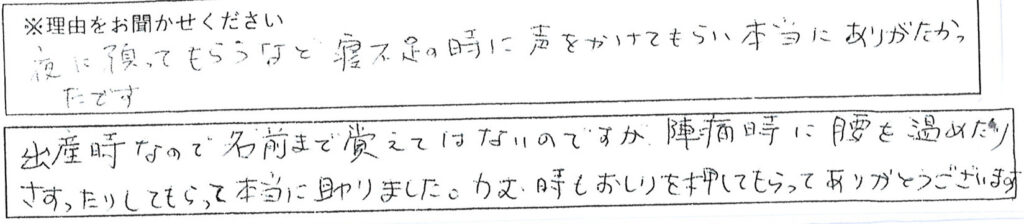 ※理由をお聞かせください
夜に預ってもらうなど寝不足の時に声をかけてもらい本当にありがたかっ
たです
出産時なので名前まで覚えてはないのですが、陣痛時に腰を温めたり
さすったりしてもらって本当に助りました。力む時もおしりを押してもらってありがとうございます